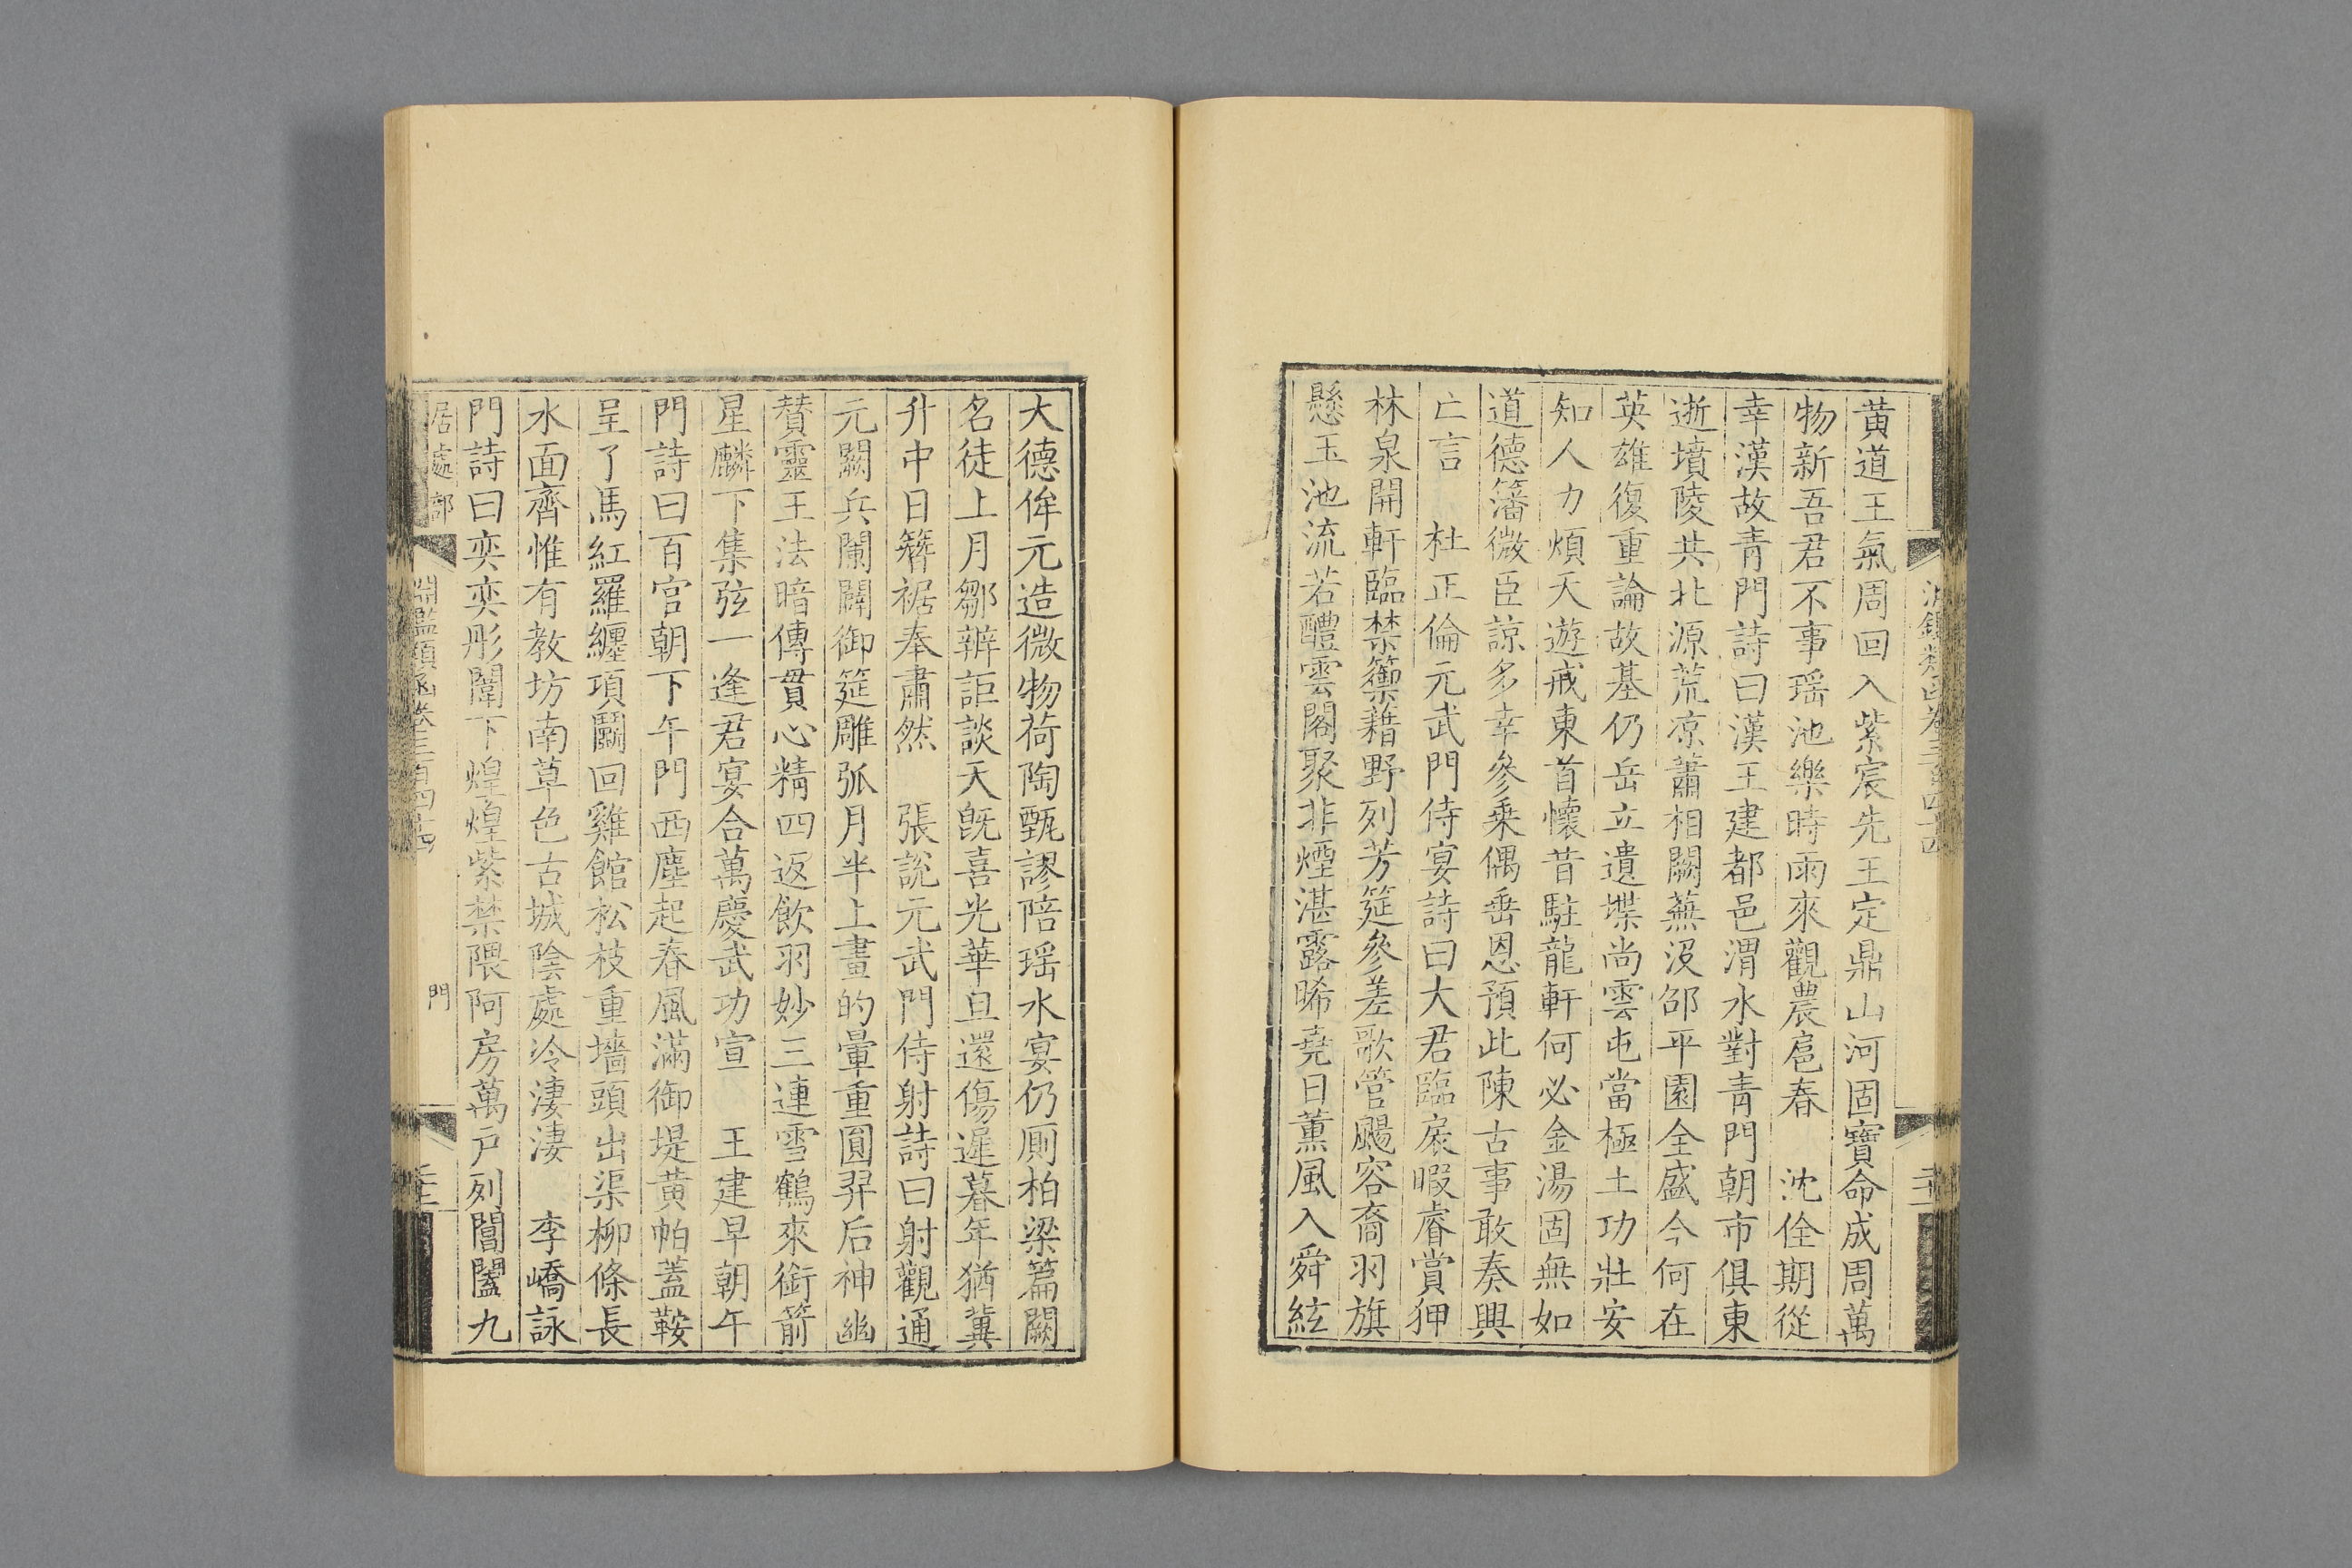 黄道王氣周回入紫宸先王定鼎山河固寶命成周萬
物新吾君不事瑶池樂時雨來觀農扈春　沈佺期從
幸漢故青門詩曰漢王建都邑渭水對青門朝市俱東
逝墳陵共北源荒凉蕭相闕蕪没邵平園全盛今何在
英雄復重論故基仍岳立遺堞尚雲屯當極土功壯安
知人力煩天遊戒東首懷昔駐龍軒何必金湯固無如
道德籓微臣諒多幸參乘偶垂恩預此陳古事敢奏興
亡言　杜正倫元武門侍宴詩曰大君臨扆暇睿賞狎
林泉開軒臨禁籞藉野列芳筵參差歌管颺容裔羽旗
懸玉池流若醴雲閣聚非煙湛露晞堯日薰風入舜絃
大德侔元造微物荷陶甄謬陪瑶水宴仍厠柏梁篇闕
名徒上月鄒辨詎談天旣喜光華旦還傷遲暮年猶冀
升中日簪裾奉肅然　張說元武門侍射詩曰射觀通
元闕兵闌闢御筵雕弧月半上畫的暈重圓羿后神幽
賛靈王法暗傳貫心精四返飲羽妙三連雪鶴來銜箭
星麟下集弦一逢君宴合萬慶武功宣　王建早朝午
門詩曰百官朝下午門西塵起春風滿御堤黄帕蓋鞍
呈了馬紅羅纏項鬬回雞館松枝重墻頭出渠柳條長
水面齊惟有教坊南草色古城陰處冷淒淒　李嶠詠
門詩曰奕奕彤闈下煌煌紫禁隈阿房萬户列閶闔九
居處部　淵鑑類函卷三百四十四　門